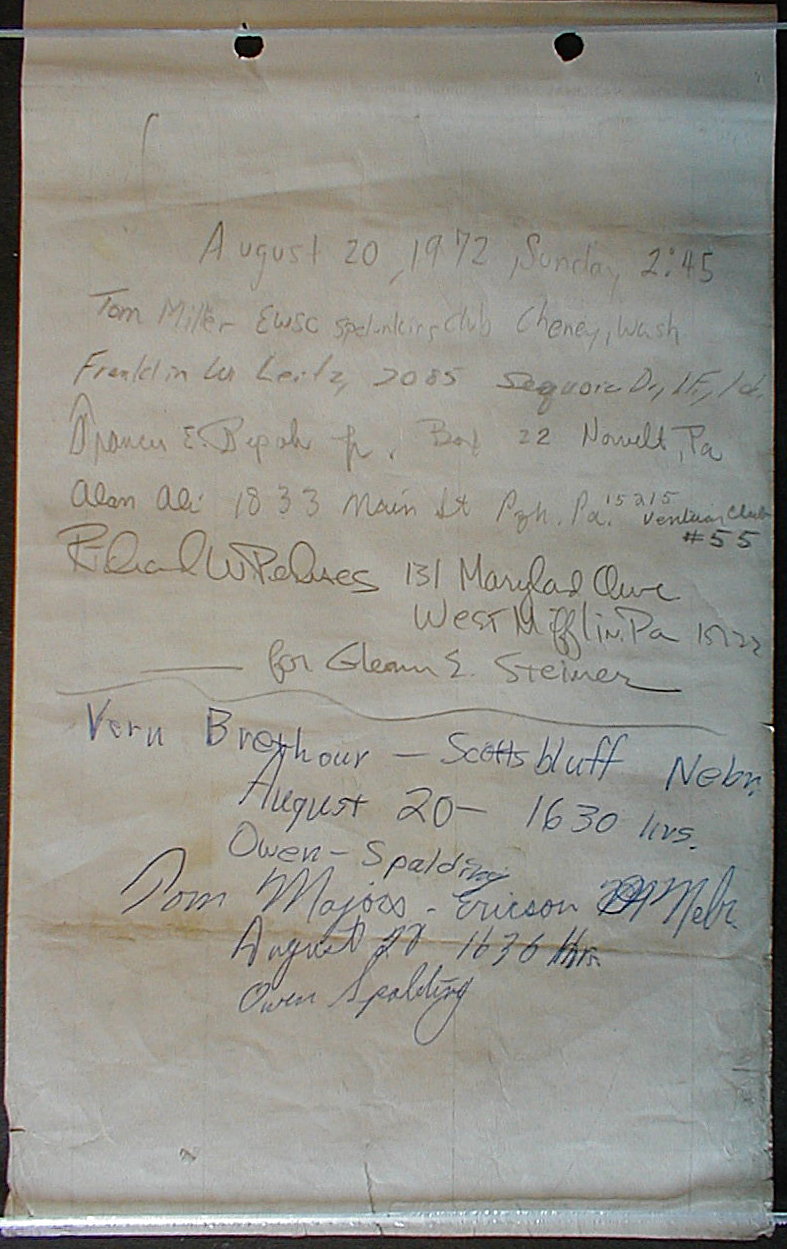 August 20, 1972, Sunday, 2:45
Tom Miller EWSC spelunking club Cheney, Wash
Franklin W Leitz, 2085 Sequoia Dr., I.F., Id.
E. Jr. Box 22 Norvelt, Pa
Alan Ali 1833 Main St Pgh. Pa. 15215 Club
#55
Richard W 131 Maryland Ave
West Mifflin, Pa 15122
for Glenn E. Steiner
Vern Brethour — Scottsbluff Nebr.
August 20 — 1630 hrs.
Owen - Spalding
Tom Majors - Ericson Nebr.
August 1630 Hrs.
Owen Spalding